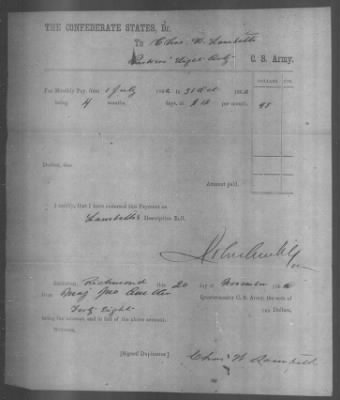 THE CONFEDERATE STATES, Dr.
To Chas. W. Lambeth
Light Arty C. S. Army.
DOLLARS. CTS.
For Monthly Pay, from 1 July 186 to 31 Oct 186
being 4 months, days, at $12 per month, 48
Deduct, due
Amount paid,
I certify, that I have endorsed this Payment on
Lambeth's Descriptive Roll.
Received, Richmond this 20 day of November 186
from Maj Jno Quartermaster C. S. Army, the sum of
Forty Eight Dollars,
being the amount, and in full of the above account.
Witness,
[Signed Duplicates] Chas W Lambeth